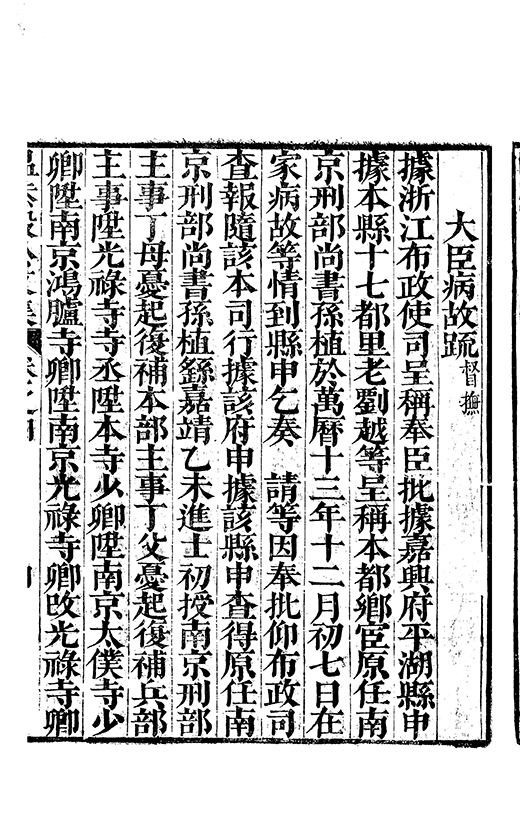 大臣病故䟽督撫
據浙江布政使司呈稱奉臣批據嘉興府平湖縣申
據本縣十七都里老劉越等呈稱本都鄉宦原任南
京刑部尚書孫植於萬曆十三年十二月初七日在
家病故等情到縣申乞奏　請等因奉批仰布政司
查報隨該本司行據該府申據該縣申查得原任南
京刑部尚書孫植繇嘉靖乙未進士初授南京刑部
主事丁母憂起復補本部主事丁父憂起復補兵部
主事陞光祿寺寺丞陞本寺少卿陞南京太僕寺少
卿陞南京鴻臚寺卿陞南京光祿寺卿改光祿寺卿